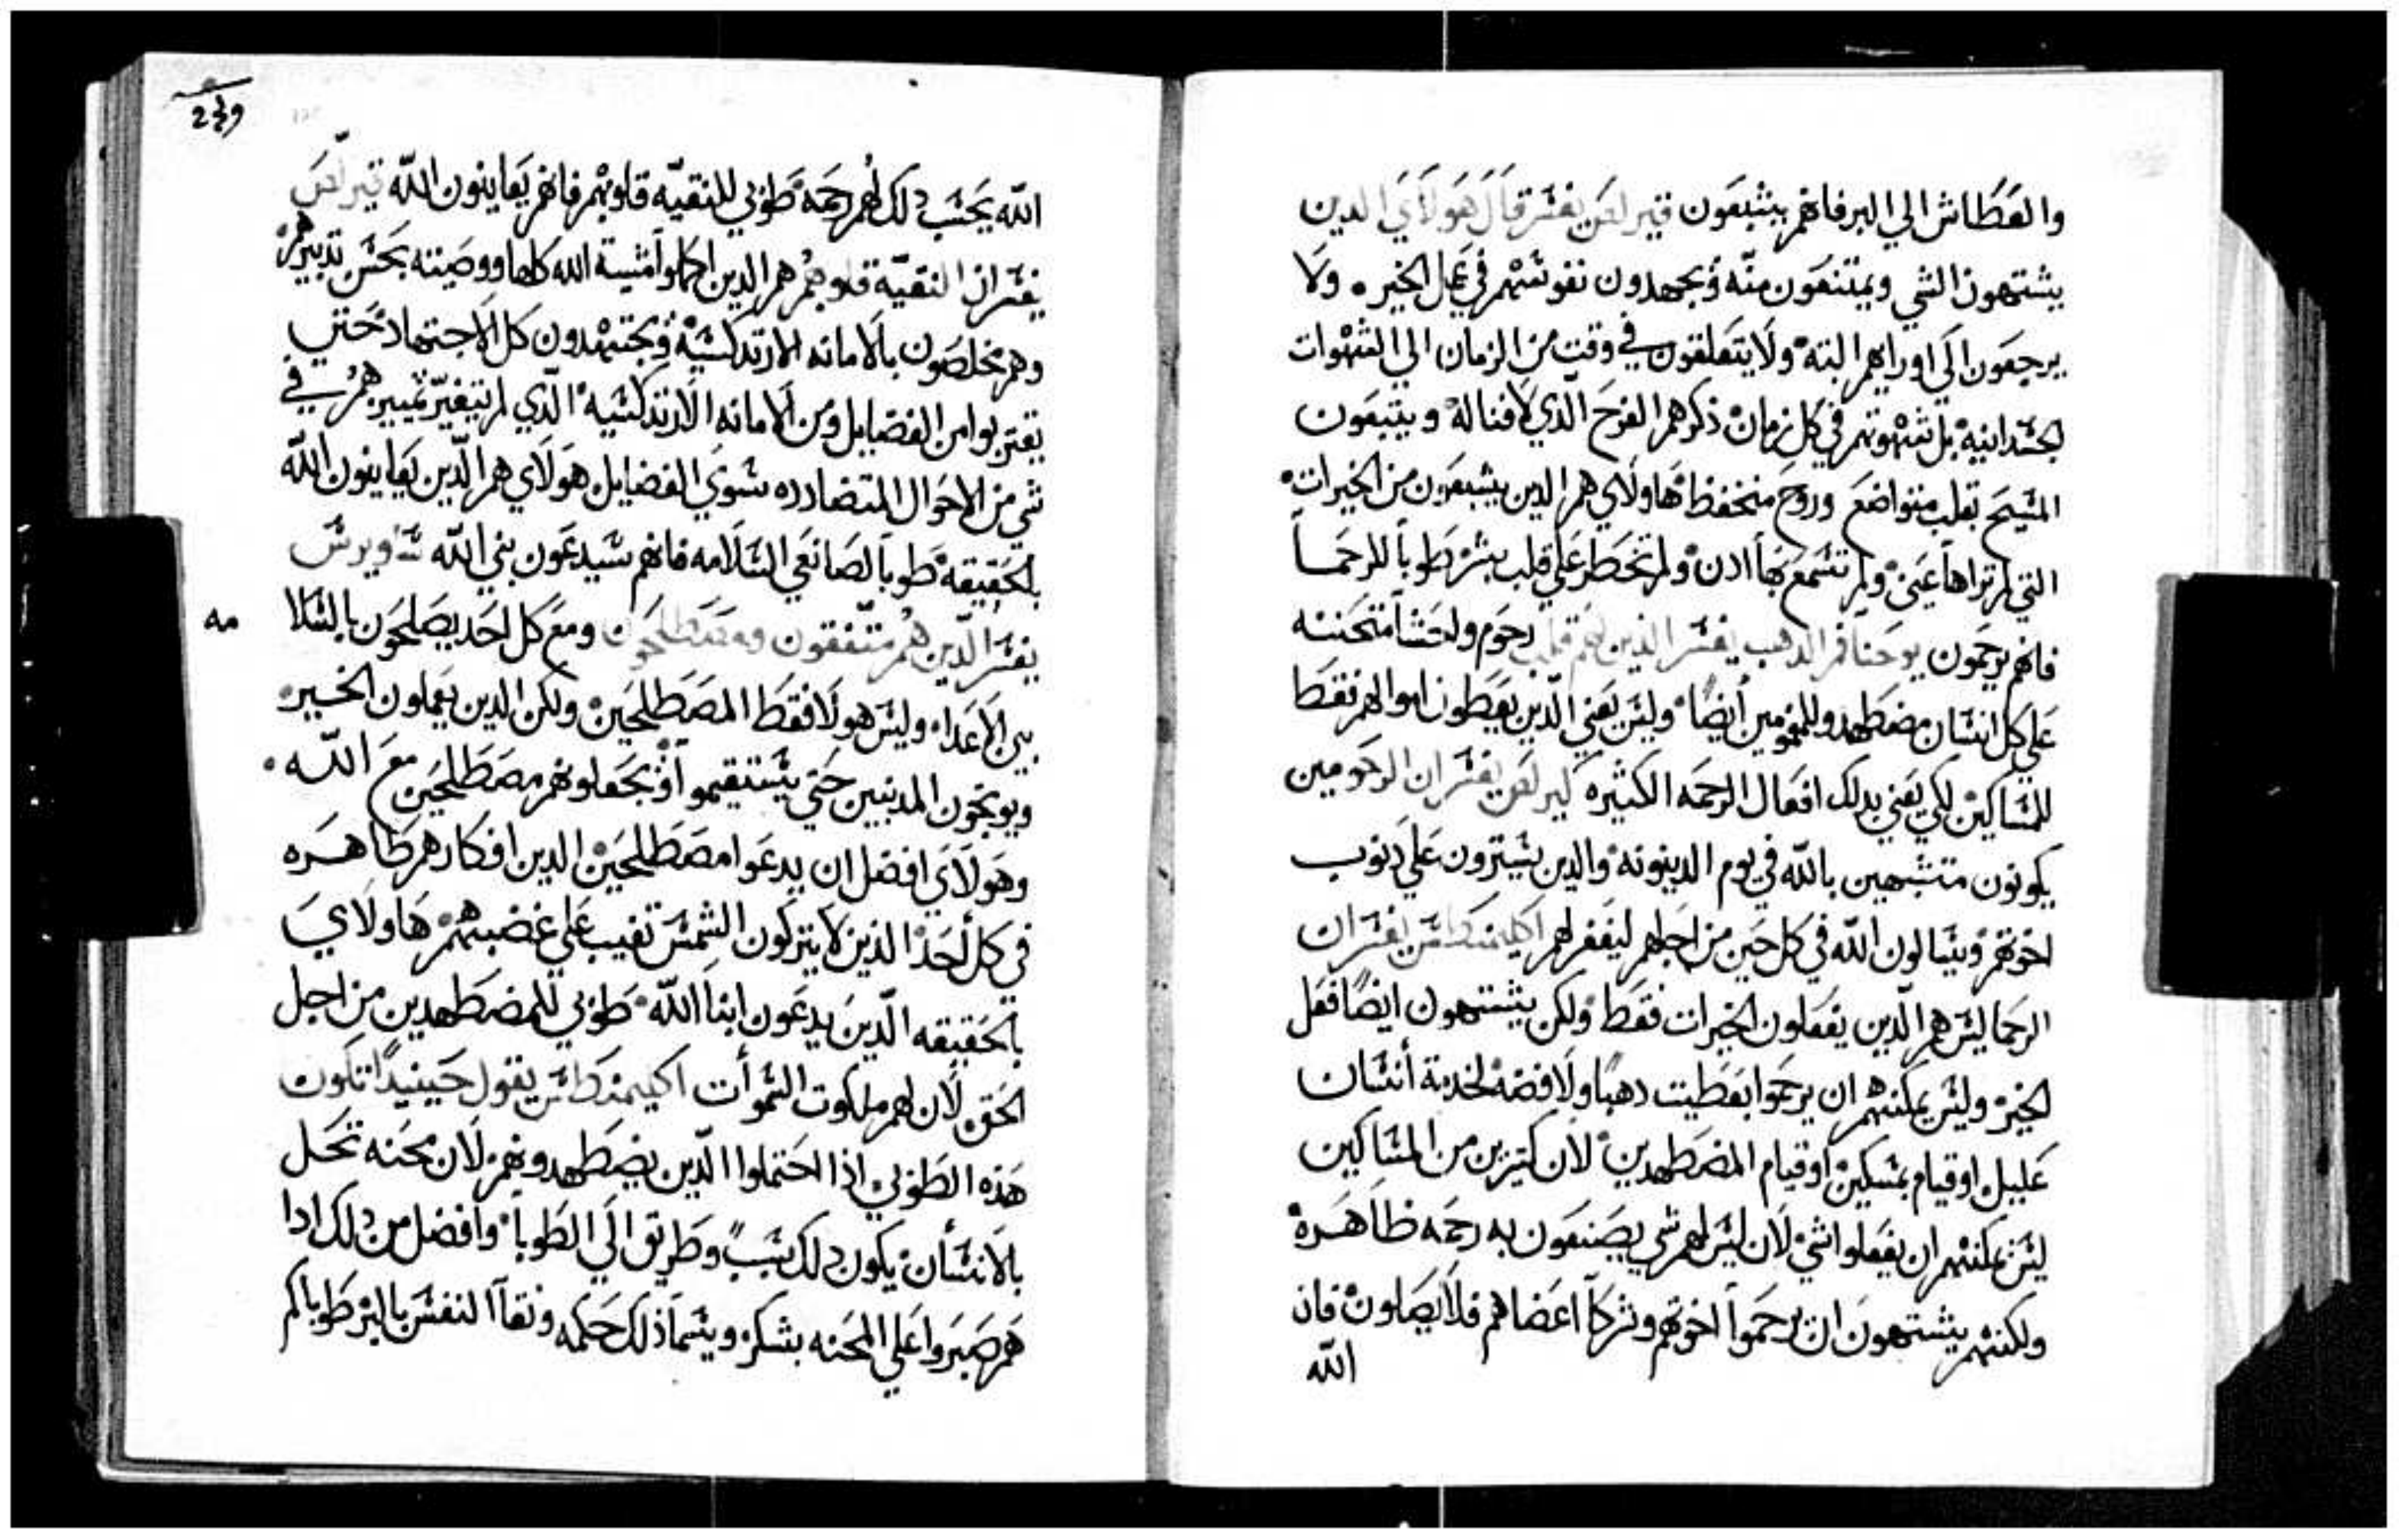 والعطاش الي البر فانهم يشبعون قيرلص يفسر قال هولاي الدين
يشتهون الشي ويمتنعون منه ويجهدون نفوسهم في عمل الخير. ولا
يرجعون الي اورايهم البته ولا يتعلقون في وقت من الزمان الي الشهوات
لجسدانيه بل شهوتهم في كل زمان ذكرهم الفرح الدي لا فنا له ويتبعون
المسيح بقلب متواضع وروح منخفظ هاولاي هم الدين يشبعون من الخيرات
التي لم تراها عين ولم تسمع بها ادن ولم تخطر علي قلب بشر طوبا للرحما
فانهم يرحمون يوحنا فم الدهب يفسر الذين لهم قلب رحوم ولحشا متحننه
علي كل انسان مضطهد وللمغمومين أيضا وليس يعني الدين يعطون اموالهم فقط
للمساكين لكي يعني بدلك افعال الرحمه الكثيره كيرلص يفسر ان الرحومين
يكونون متشبهين بالله في يوم الدينونه والدين يسترون علي دنوب
اخوتهم ويسالون الله في كل حين من اجلهم ليغفر لهم اكليمنكطس يفسر ان
الرحما ليس هم الدين يفعلون الخيرات فقط ولكن يشتهون ايضا فعل
الخير وليس يمكنهم ان يرحموا بعطيت دهبا ولا فضه لخدمة أنسان
عليل او قيام بمسكين او قيام المضطهدين لان كتيرين من المساكين
ليس يمكنهم ان يفعلوا شي لان ليس لهم شي يصنعون به رحمه ظاهره
ولكنهم يشتهون ان يرحموا اخوتهم وشركا اعضاهم فلا يصلون فان
الله
249
الله يحسب دلك لهم رحمه طوبي للنقيه قلوبهم فانهم يعاينون الله قيرلص
يفسر ان النقيه قلوبهم هم الدين اكملوا مشية الله كلها ووصيته بحسن تدبيرهم
وهم مخلصون بالامانه الارتدكسيه ويجتهدون كل الاجتهاد حتي
يقتربوا من الفضايل ومن الامانه الارتدكسيه الدي لم يتغير تمييرهم في
شي من الاحوال المتضادده سوي الفضايل هولاي هم الدين يعاينون الله
بالحقيقه طوبا لصانعي السلامه فانهم سيدعون بني الله ساويرس
يفسر الدين هم متفقون ومصطلحون ومع كل احد يصلحون بالسلا
مه
بين الاعدا وليس هولا فقط المصطلحين ولكن الدين يعملون الخير
ويوبخون المدنبين حتي يستقيموا او يجعلونهم مصطلحين مع الله.
وهولاي افضل ان يدعوا مصطلحين الدين افكارهم طاهره
في كل أحد الذين لا يتركون الشمس تغيب علي غضبهم هاولاي
بالحقيقه الدين يدعون ابنا الله طوبي للمضطهدين من اجل
الحق لان لهم ملكوت السموأت اكيمنكطس يقول حينيدا تكون
هذه الطوبي اذا احتملوا الدين يضطهدونهم لان محنه تحل
بالانسأن يكون دلك سبب وطريق الي الطوبا وافضل من دلك ادا
هم صبروا علي المحنه بشكر ويسما ذلك حكمه ونقا النفس بالبر طوباكم